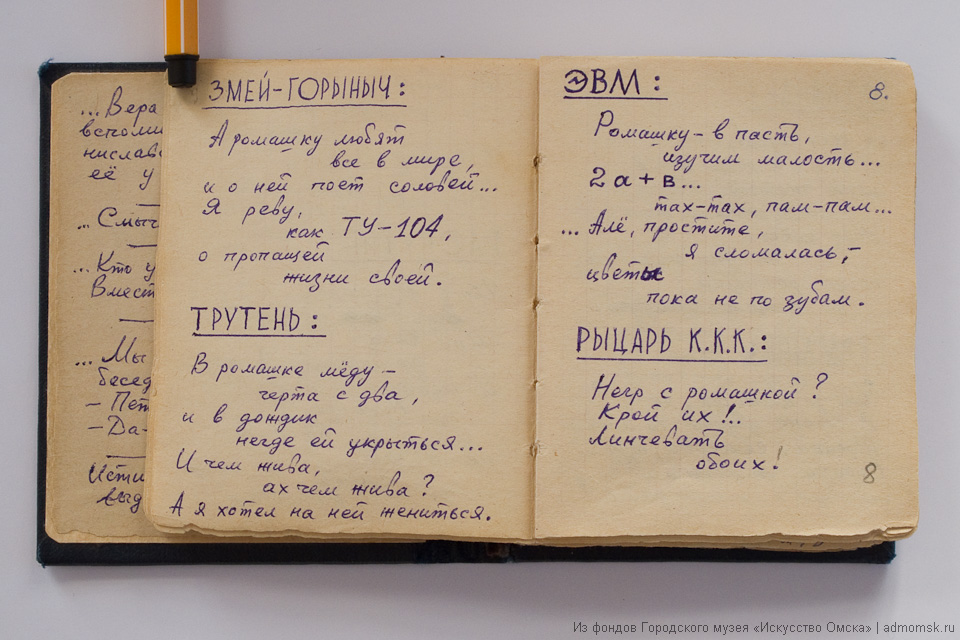 ...Вера
её у
...Кто у
Вмест
...Мы
бесед
- Пет
- Да-
ЗМЕЙ-ГОРЫНЫЧ:
А ромашку любят
все в мире,
и о ней поет соловей...
Я реву,
как ТУ-104,
о пропащей
жизни своей.
ТРУТЕНЬ:
В ромашке мёду –
черта с два,
и в дождик
негде ей укрыться...
И чем жива,
ах чем жива?
А я хотел на ней жениться.
ЭВМ:
8.
Ромашку – в пасть,
изучим малость...
2а+в...
тах-тах, пам-пам...
...Алё, простите,
я сломалась, –
цветы
пока не по зубам.
РЫЦАРЬ К.К.К.:
Негр с ромашкой?
Крой их!..
Линчевать
обоих!
8
Из фондов Городского музея «Искусство Омска» | admomsk.ru